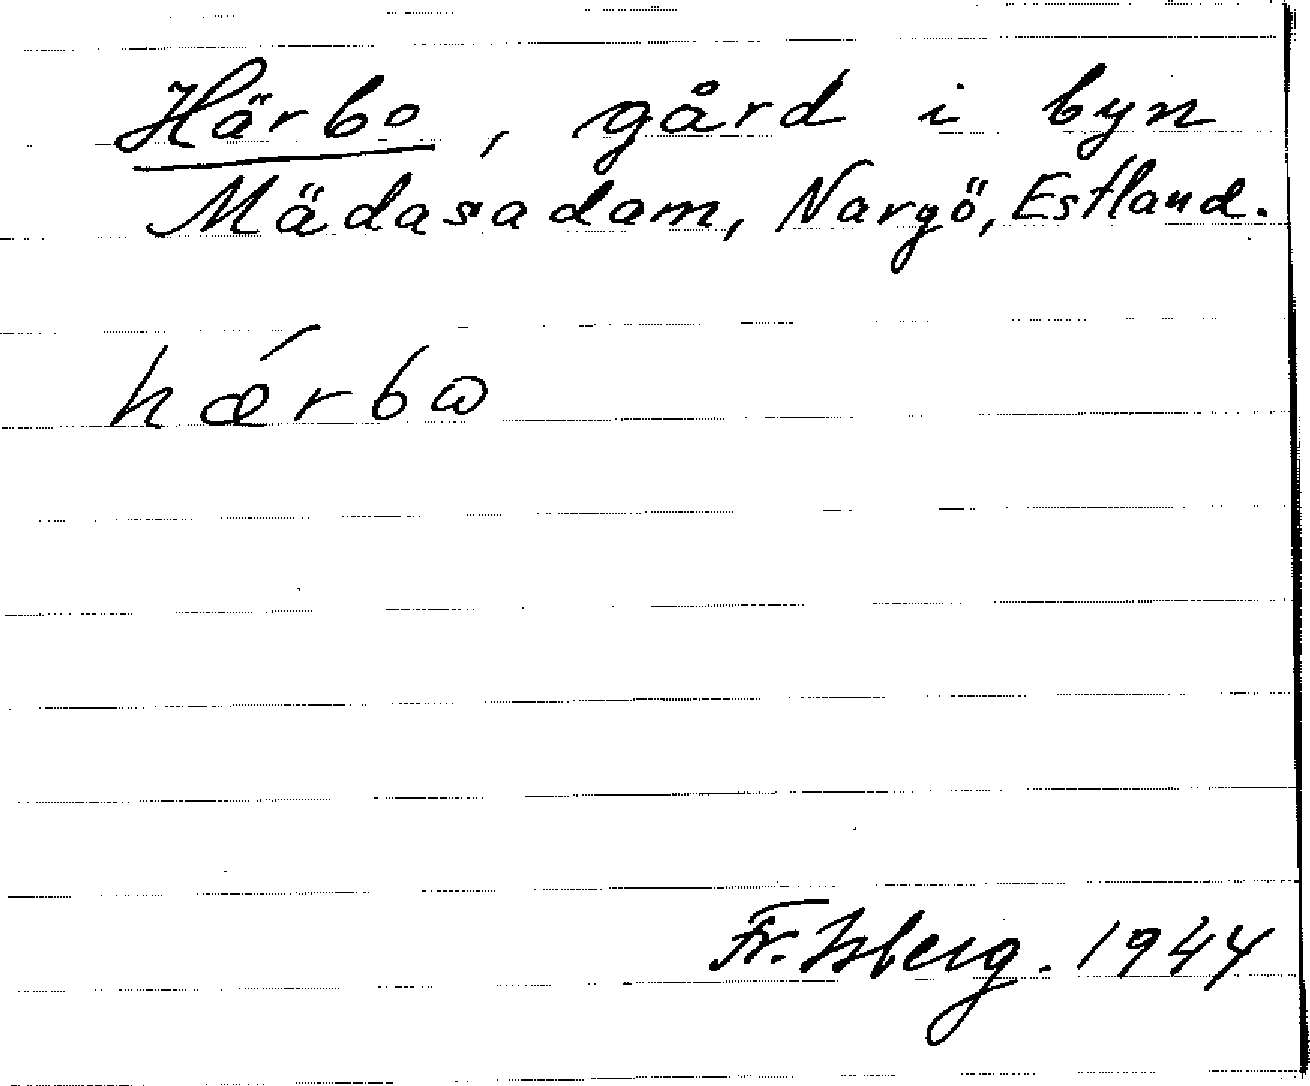 Härbo, gård i byn
Mädasadam, Nargö, Estland.
hǽrbɷ
Fr. Isberg. 1944